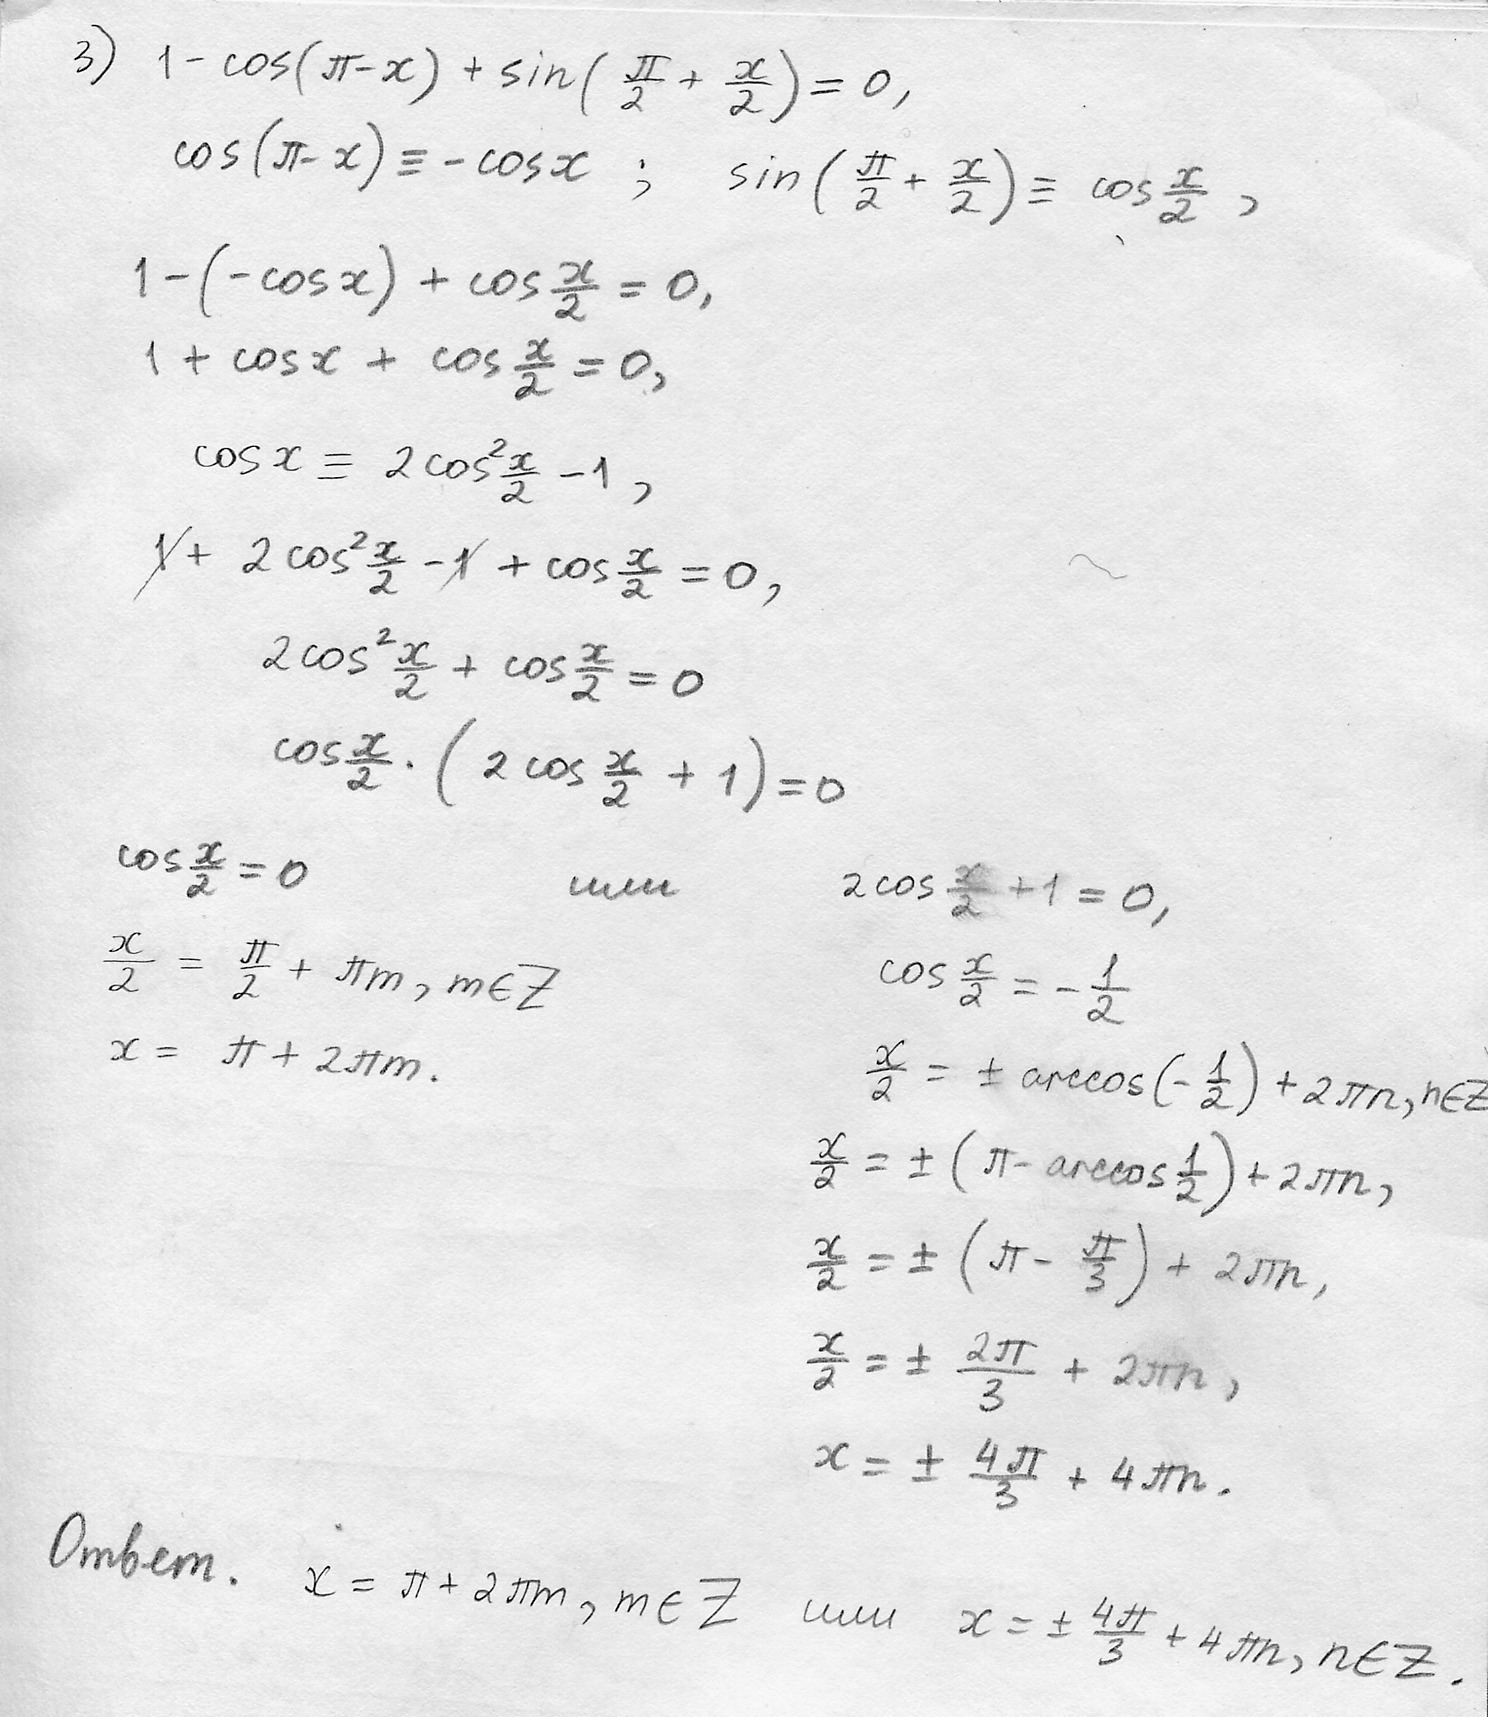 3) 1 - cos(π - x) + sin(π/2 + x/2) = 0,
cos(π - x) ≡ - cos x ; sin(π/2 + x/2) ≡ cos x/2 ,
1 - (- cos x) + cos x/2 = 0,
1 + cos x + cos x/2 = 0,
cos x ≡ 2 cos² x/2 - 1 ,
1 + 2 cos² x/2 - 1 + cos x/2 = 0,
2 cos² x/2 + cos x/2 = 0
cos x/2 · (2 cos x/2 + 1) = 0
cos x/2 = 0 или 2 cos x/2 + 1 = 0,
x/2 = π/2 + πm, m ∈ Z
x = π + 2πm.
cos x/2 = - 1/2
x/2 = ± arccos(- 1/2) + 2πn, n ∈ Z
x/2 = ± (π - arccos 1/2) + 2πn,
x/2 = ± (π - π/3) + 2πn,
x/2 = ± 2π/3 + 2πn,
x = ± 4π/3 + 4πn.
Ответ. x = π + 2πm, m ∈ Z или x = ± 4π/3 + 4πn, n ∈ Z.